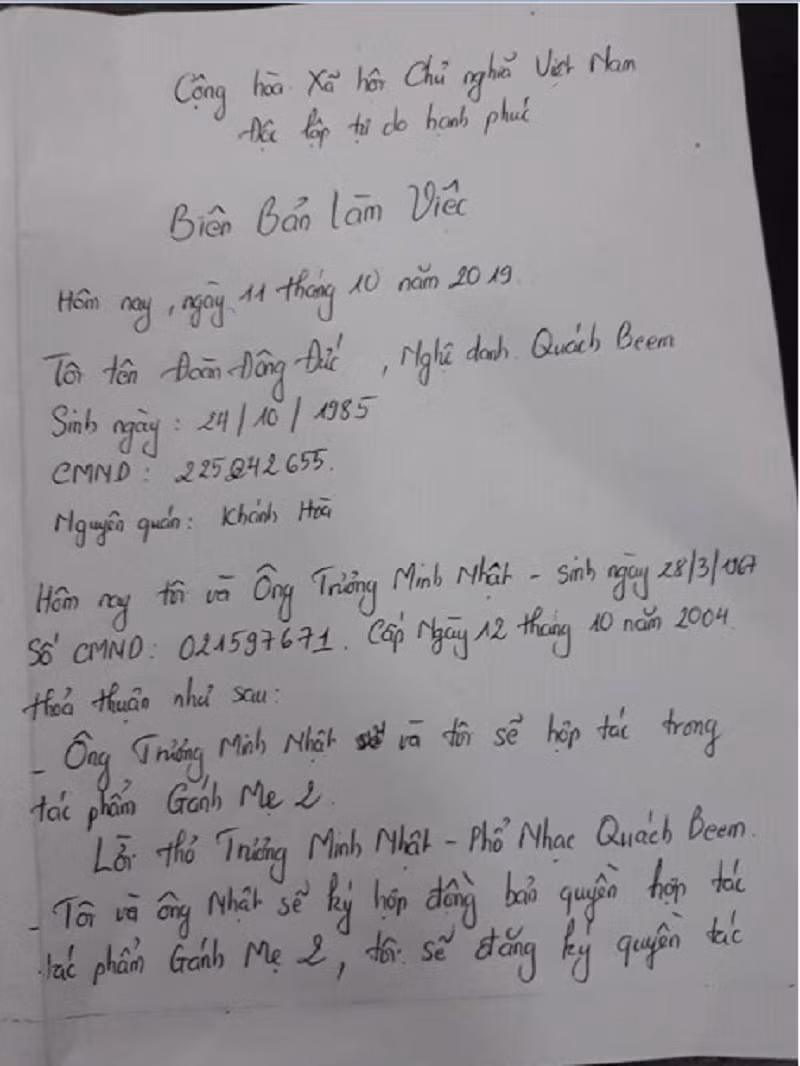 Cộng hòa Xã hôi Chủ nghĩa Việt Nam
Độc lập tự do hạnh phúc
Biên Bản làm Việc
Hôm nay, ngày 11 tháng 10 năm 2019.
Tôi tên Đoàn Đông Đức, Nghệ danh Quách Beem
Sinh ngày: 24/10/1985
CMND: 225242655.
Nguyên quán: Khánh Hoà
Hôm nay tôi và Ông Trương Minh Nhật - Sinh ngày 28/3/1967
Số CMND: 021597671. Cấp Ngày 12 tháng 10 năm 2004.
thoả thuận như sau:
- Ông Trương Minh Nhật và tôi sẽ hợp tác trong
tác phẩm Gánh Mẹ 2.
Lời thơ Trương Minh Nhật - Phổ Nhạc Quách Beem.
- Tôi và ông Nhật sẽ ký hợp đồng bản quyền hợp tác
tác phẩm Gánh Mẹ 2, tôi sẽ đăng ký quyền tác